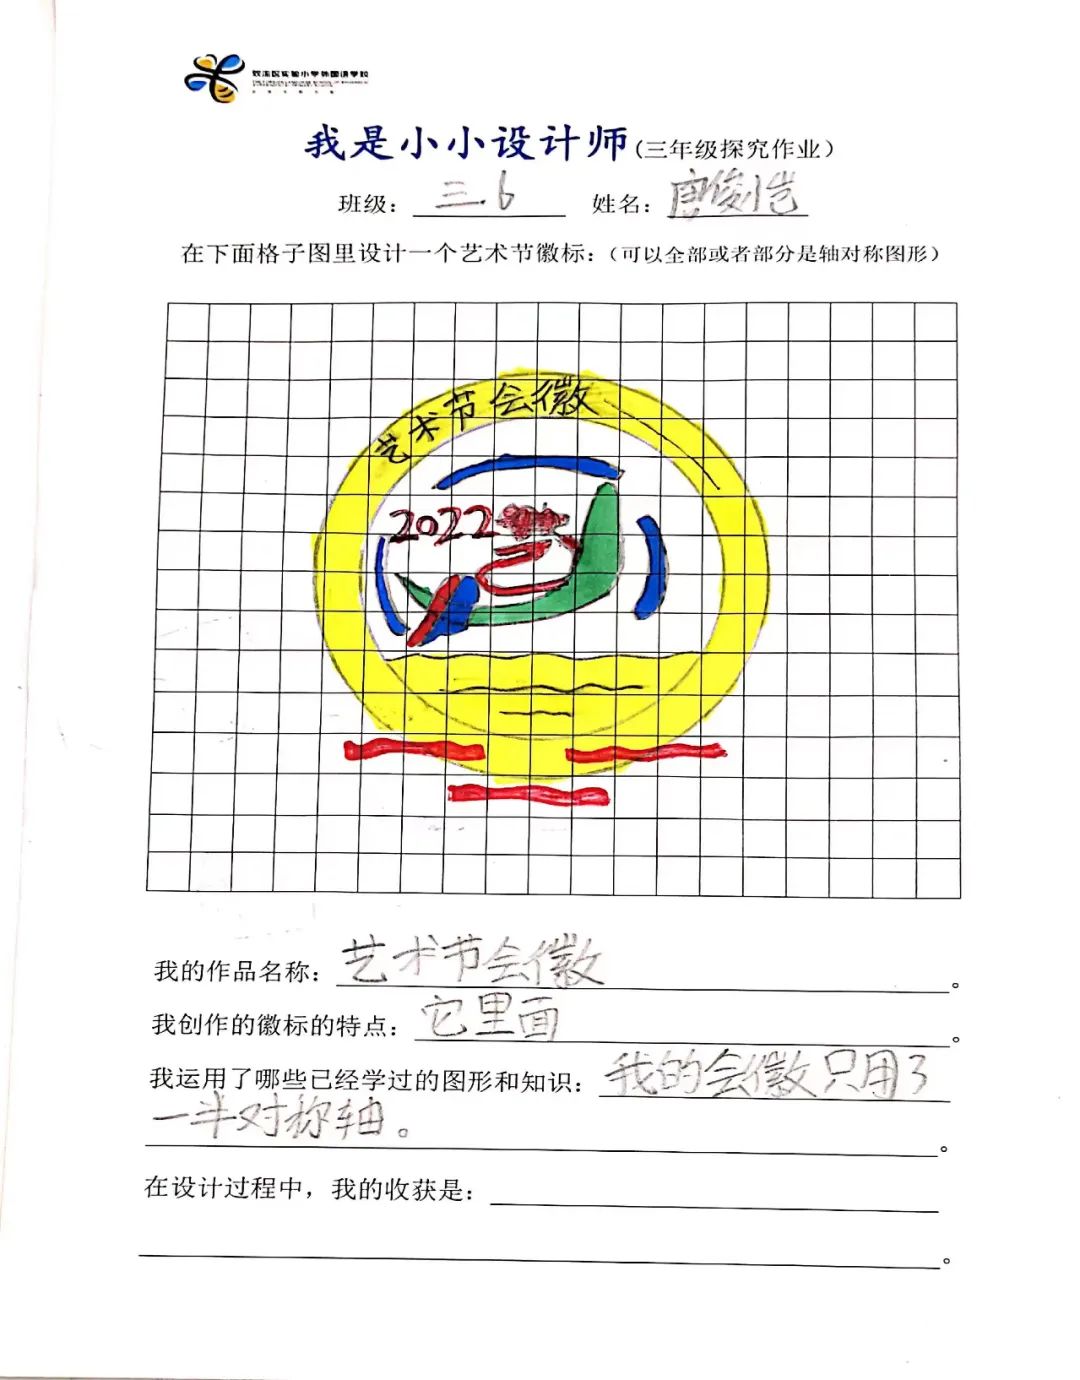 双流区实验小学外国语学校
我是小小设计师(三年级探究作业）
班级：三.6 姓名：唐俊岂
在下面格子图里设计一个艺术节徽标：（可以全部或者部分是轴对称图形）
艺术节会徽
2022
我的作品名称：艺术节会徽。
我创作的徽标的特点：它里面。
我运用了哪些已经学过的图形和知识：我的会徽只用了
一半对称轴。。
在设计过程中，我的收获是：
。